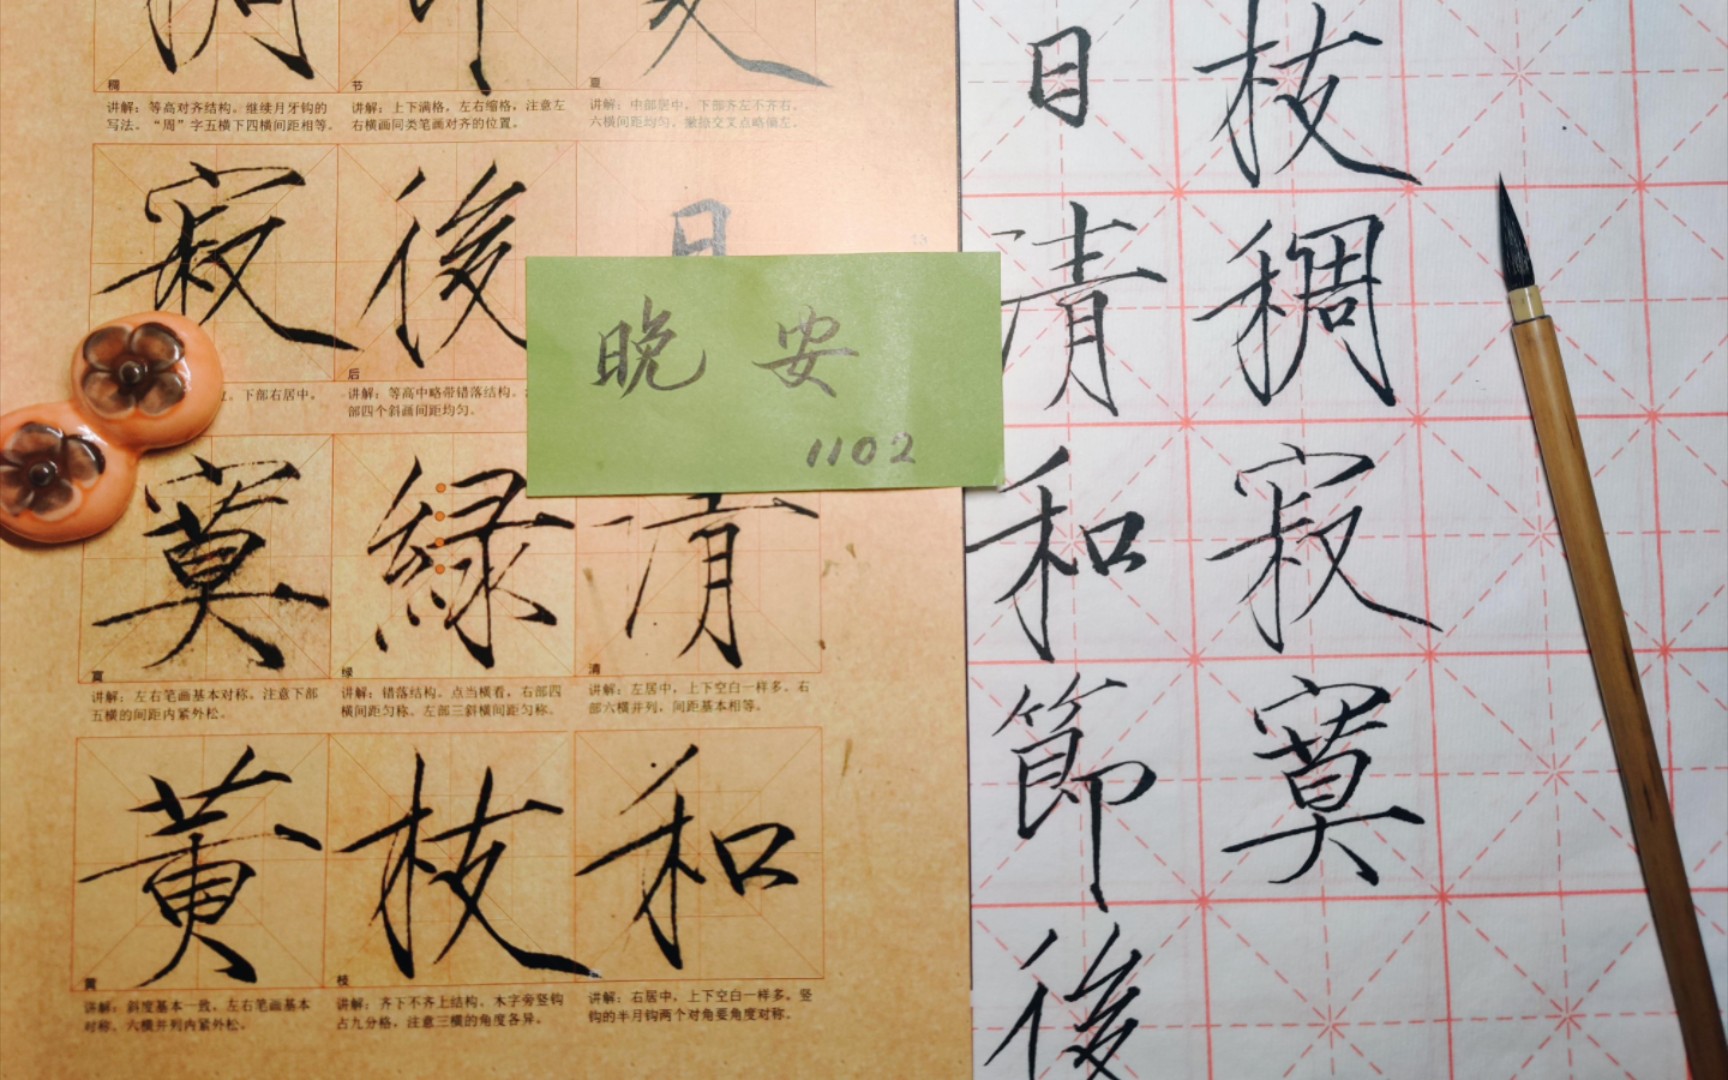 稠 节 夏
讲解：等高对齐结构。继续月牙钩的
写法。“周”字五横下四横间距相等。
讲解：上下满格，左右缩格，注意左
右横画同类笔画对齐的位置。
讲解：中部居中，下部齐左不齐右。
六横间距均匀，撇捺交叉点略偏左。
寂 後 日
后
下部右居中。
讲解：等高中略带错落结构。
部四个斜画间距均匀。
晚 安
1102
寞 緑 清
寞 绿 清
讲解：左右笔画基本对称。注意下部
五横的间距内紧外松。
讲解：错落结构。点当横看，右部四
横间距匀称。左部三斜横间距匀称。
讲解：左居中，上下空白一样多。右
部六横并列，间距基本相等。
黄 枝 和
黄 枝
讲解：斜度基本一致。左右笔画基本
对称。六横并列内紧外松。
讲解：齐下不齐上结构。木字旁竖钩
占九分格，注意三横的角度各异。
讲解：右居中，上下空白一样多。竖
钩的半月钩两个对角要角度对称。
枝稠寂寞
日清和節後